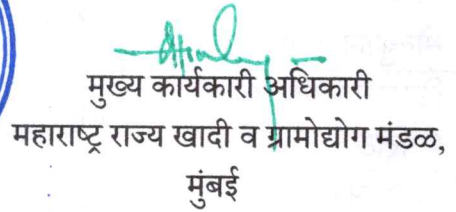 मुख्य कार्यकारी अधिकारी
महाराष्ट्र राज्य खादी व ग्रामोद्योग मंडळ,
मुंबई